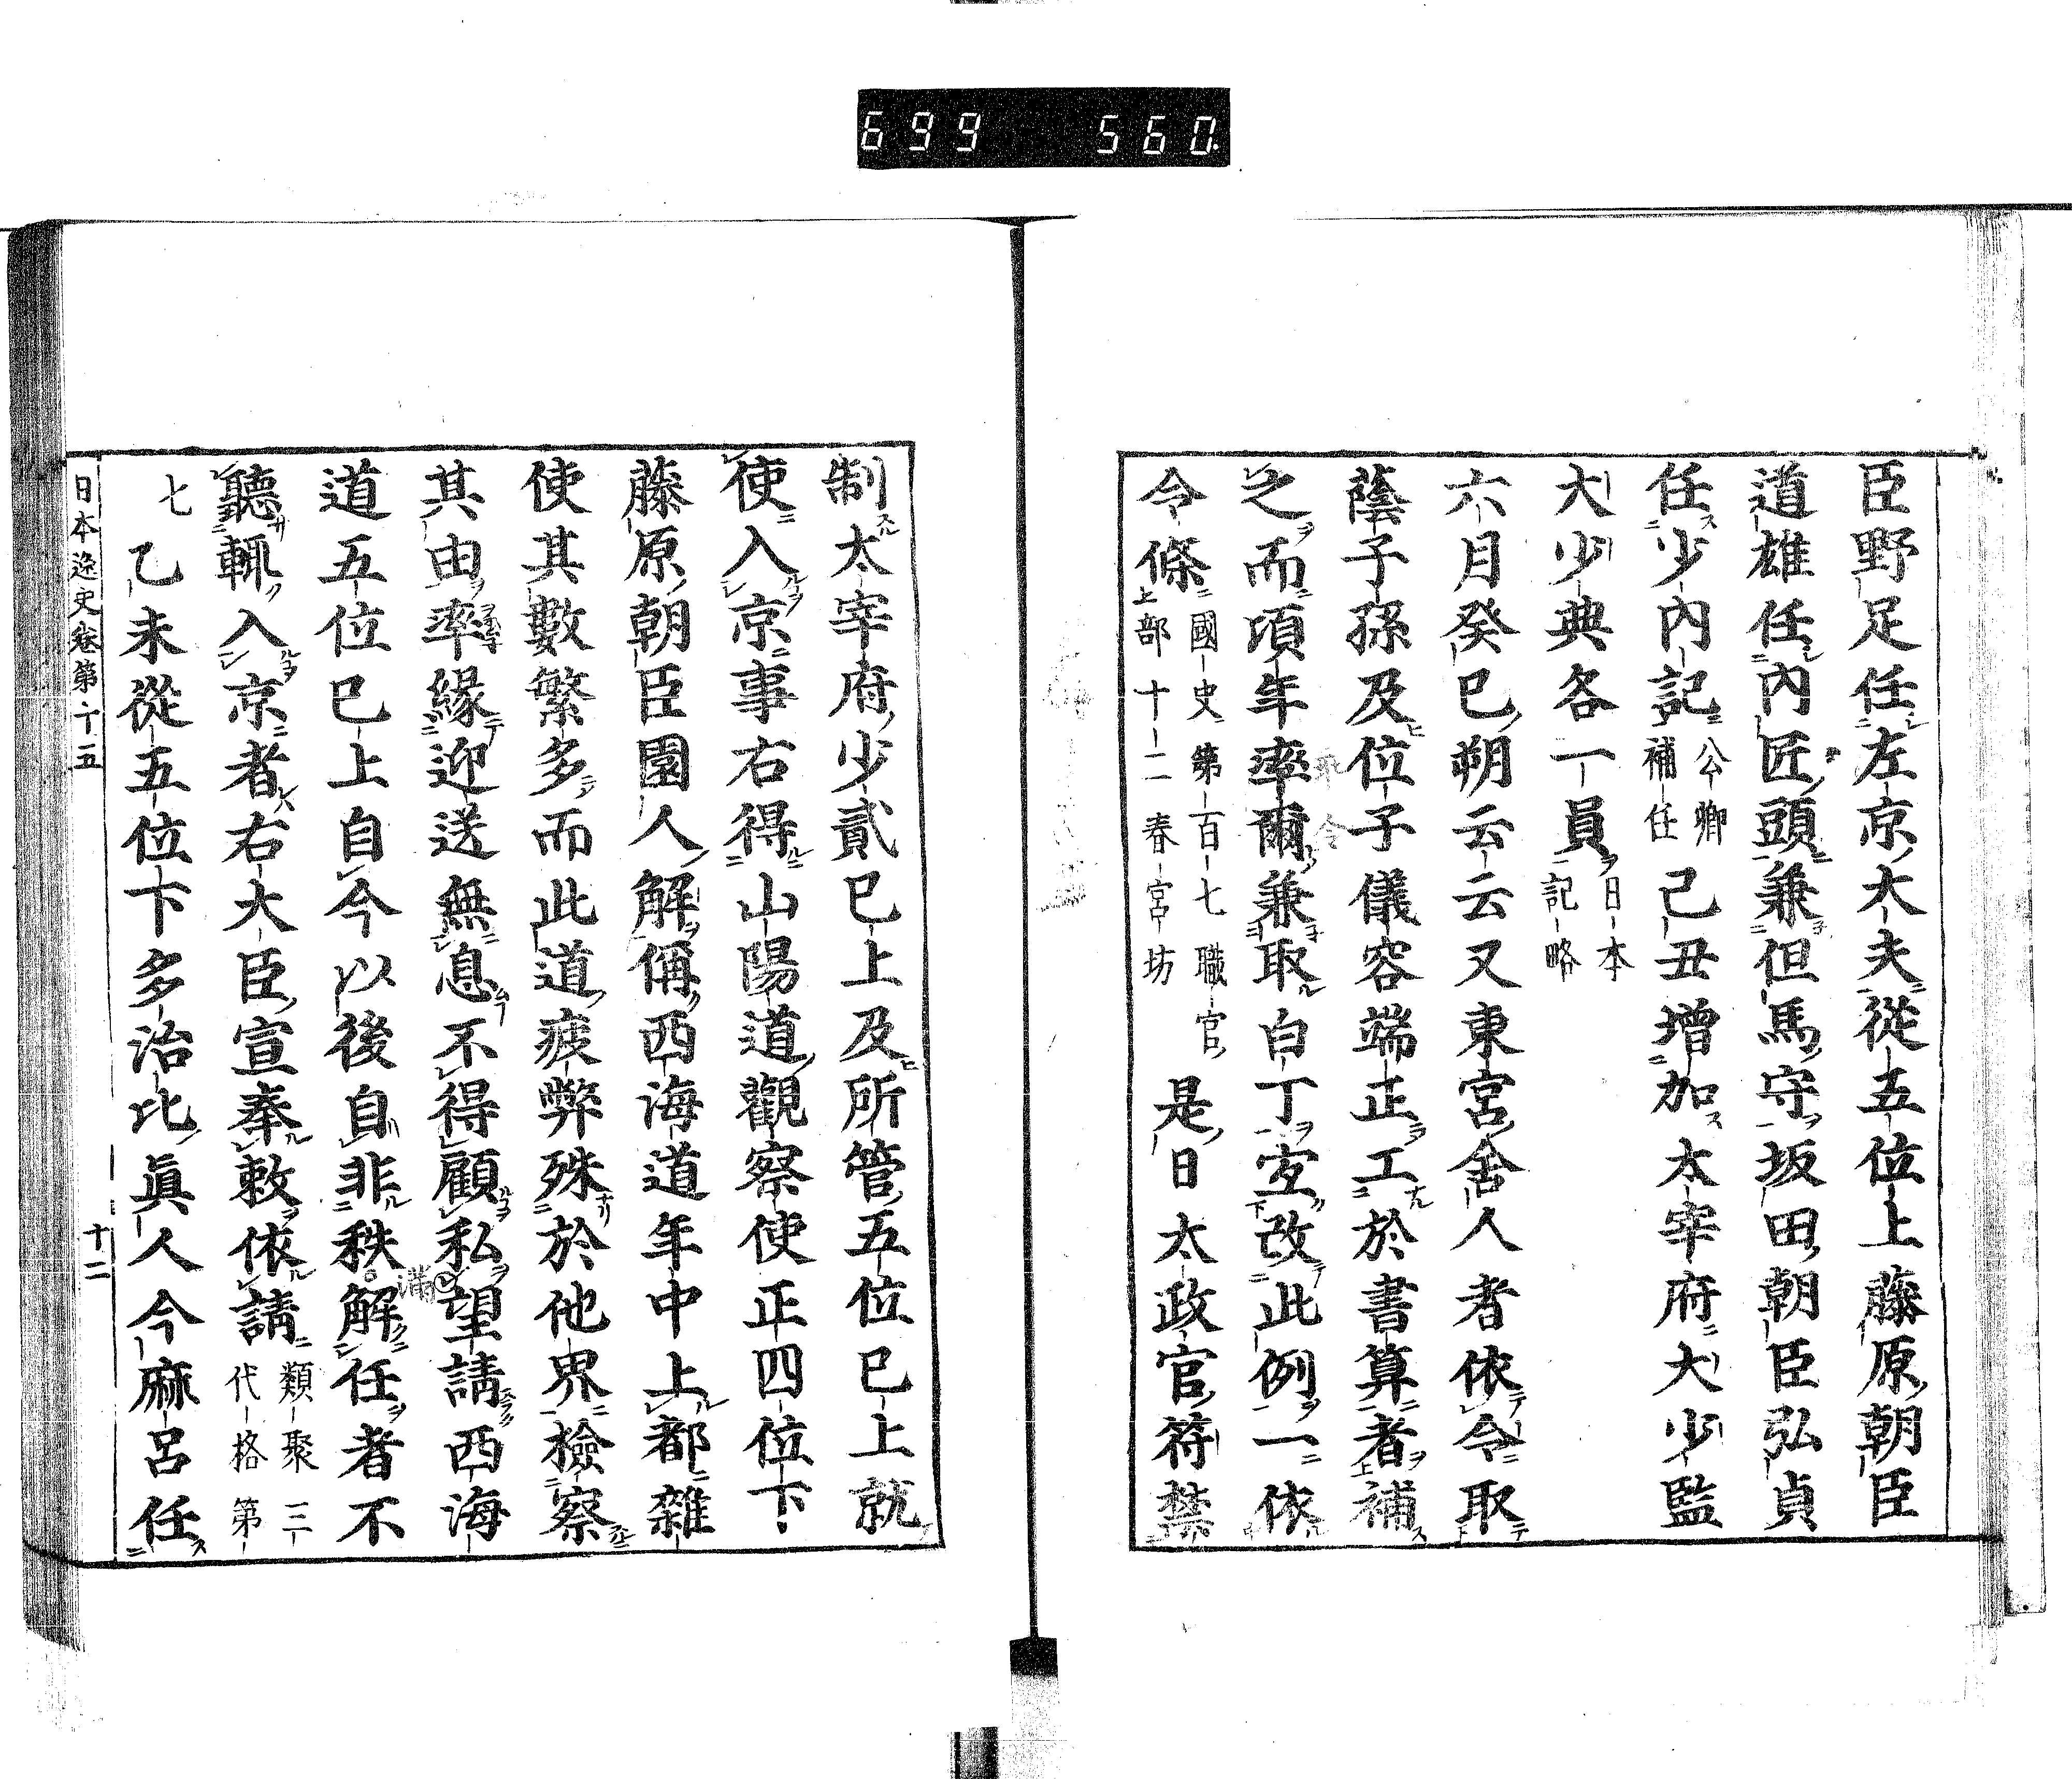 699 560
臣野足任左京大夫從五位上藤原朝臣
道雄任内匠頭兼但馬守坂田朝臣弘貞
任少内記公卿補任己丑增加太宰府大少監
大少典各一員日本記略
六月癸巳朔云云又東宮舍人者依令取
蔭子孫及位子儀容端正工於書算者補
之而項年率爾兼取白丁宜改此例一依
令條國史第百七職官部十二春宮坊是日太政官符禁
制太宰府少貳已上及所管五位已上就
使入京事右得山陽道觀察使正四位下
藤原朝臣園人解偁西海道年中上都雜
使其數繁多而此道疲弊殊於他界檢察
其由率緣迎送無息不得顧私望請西海
道五位已上自今以後自非秩解任者不
滿
聽輙入京者右大臣宣奉敕依請類聚三代格第
七乙未從五位下多治比眞人今麻呂任
日本逸史卷第十五
十二